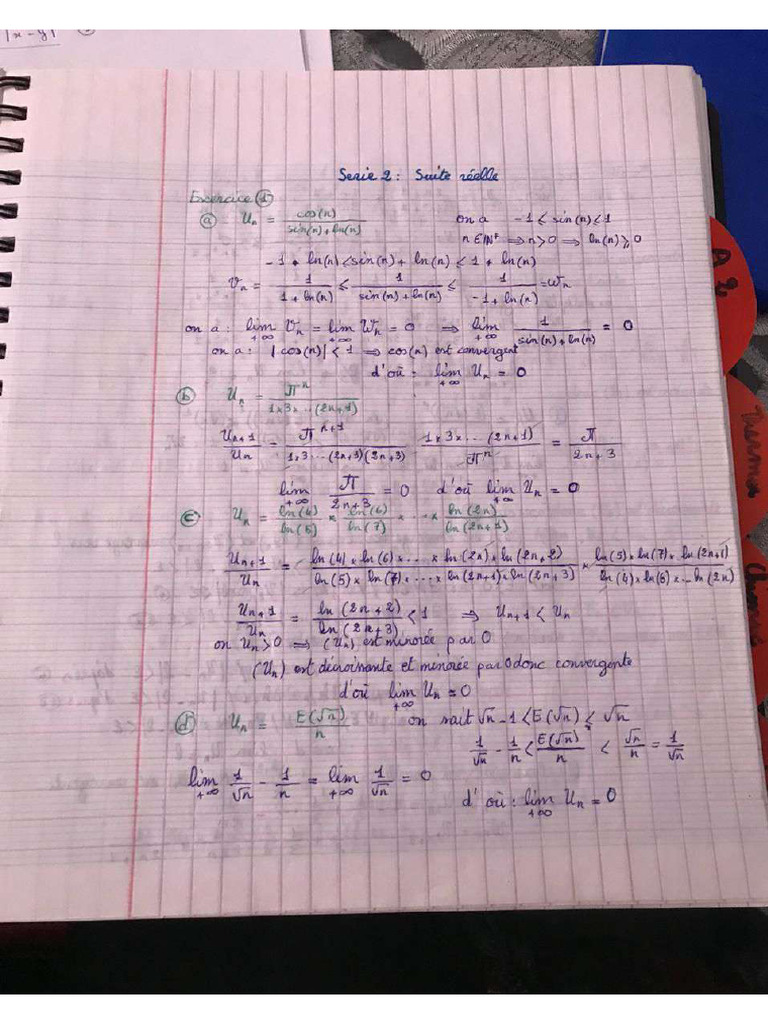 |x-y|
Serie 2 : Suite réelle
Exercice 1
a) Un = cos(n) / (sin(n)+ln(n)) on a -1 ≤ sin(n) ≤ 1
n ∈ IN* ⇒ n > 0 ⇒ ln(n) ≥ 0
-1 + ln(n) ≤ sin(n) + ln(n) ≤ 1 + ln(n)
Vn = 1 / (1+ln(n)) ≤ 1 / (sin(n)+ln(n)) ≤ 1 / (-1+ln(n)) = Wn
on a : lim+∞ Vn = lim+∞ Wn = 0 ⇒ lim+∞ 1 / (sin(n)+ln(n)) = 0
on a : |cos(n)| < 1 ⇒ cos(n) est convergent
d'où : lim+∞ Un = 0
b) Un = π^n / (1×3×...(2n+1))
Un+1 / Un = π^(n+1) / (1×3...(2n+3)(2n+3)) 1×3×...(2n+1) / π^n = π / (2n+3)
lim+∞ π / (2n+3) = 0 d'où lim+∞ Un = 0
c) Un = ln(4)/ln(5) × ln(6)/ln(7) × ... × ln(2n)/ln(2n+1)
Un+1 / Un = (ln(4)×ln(6)×...×ln(2n)×ln(2n+2)) / (ln(5)×ln(7)×...×ln(2n+1)×ln(2n+3)) × (ln(5)×ln(7)×ln(2n+1)) / (ln(4)×ln(6)×...ln(2n))
Un+1 / Un = ln(2n+2) / ln(2n+3) < 1 ⇒ Un+1 < Un
on Un > 0 ⇒ (Un) est minorée par 0
(Un) est décroissante et minorée par 0 donc convergente
d'où lim+∞ Un = 0
d) Un = E(√n) / n on sait √n - 1 < E(√n) ≤ √n
1/√n - 1/n < E(√n)/n < √n/n = 1/√n
lim+∞ 1/√n - 1/n = lim+∞ 1/√n = 0
d'où : lim+∞ Un = 0